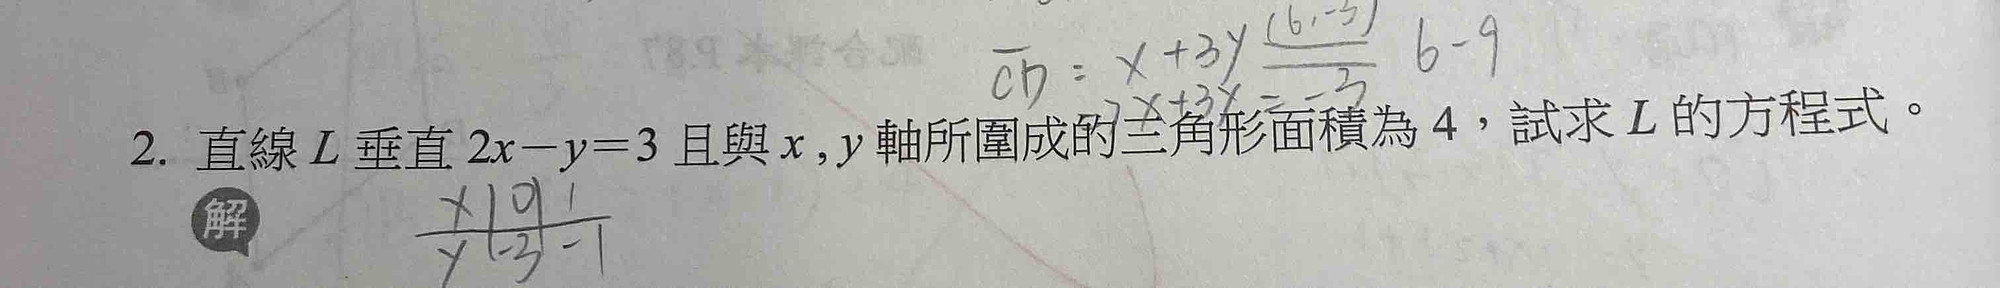 (6,-3)
CD = x+3y 6-9
→x+3y=-3
2. 直線 L 垂直 2x-y=3 且與 x , y 軸所圍成的三角形面積為 4，試求 L 的方程式。
解
x | 0 | 1
y | -3 | -1